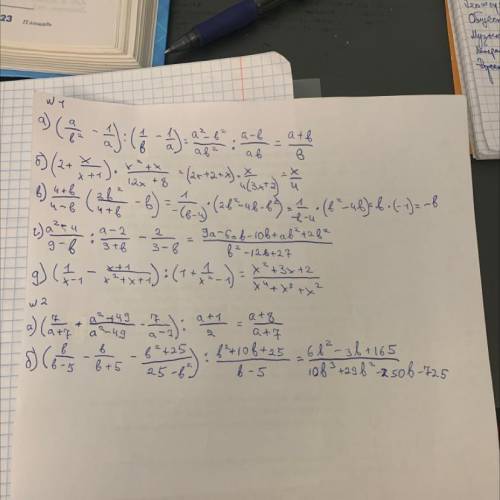 23
Площадь
№1
а) (a/b² - 1/a) : (1/b - 1/a) = a²-b²/ab² : a-b/ab = a+b/b
б) (2 + x/x+1) · x²+x/12x+8 = (2x+2+x) · x/4(3x+2) = x/4
в) 4+b/4-b (2b²/4+b - b) = 1/-(b-4) · (2b²-4b-b²) = 1/-b-4 · (b²-4b) = b · (-1) = -b
г) a²+4/9-b : a-2/3+b - 2/3-b = 9a-6ab-10b+ab²+2b²/b²-12b+27
д) (1/x-1 - x+1/x²+x+1) : (1 + 1/x²-1) = x²+3x+2/x⁴+x³+x²
№2
а) (7/a+7 + a²+49/a²-49 - 7/a-7) : a+1/2 = a+8/a+7
б) (b/b-5 - b/b+5 - b²+25/25-b²) : b²+10b+25/b-5 = 6b²-3b+165/10b³+29b²-250b-725